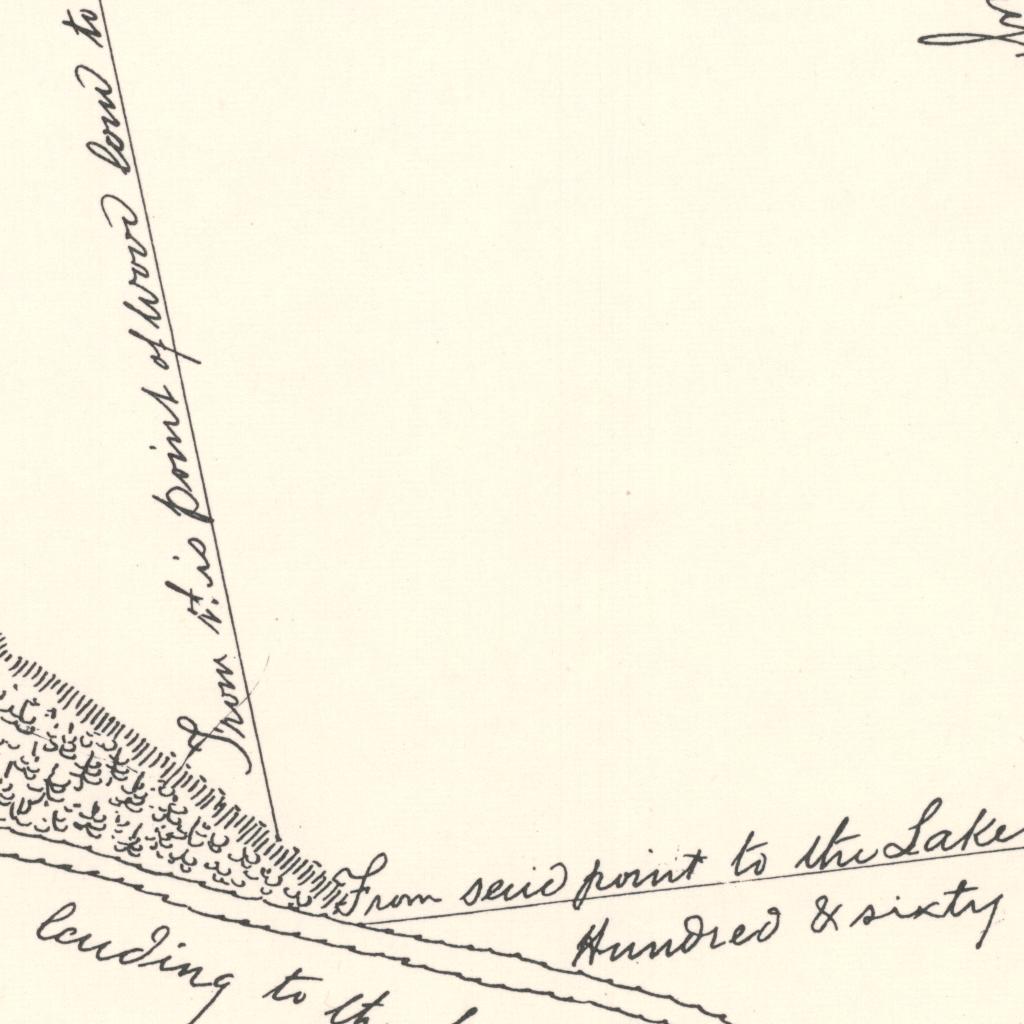 From this point of Wood Land to
From said point to the Lake
Hundred & sixty
leading to the